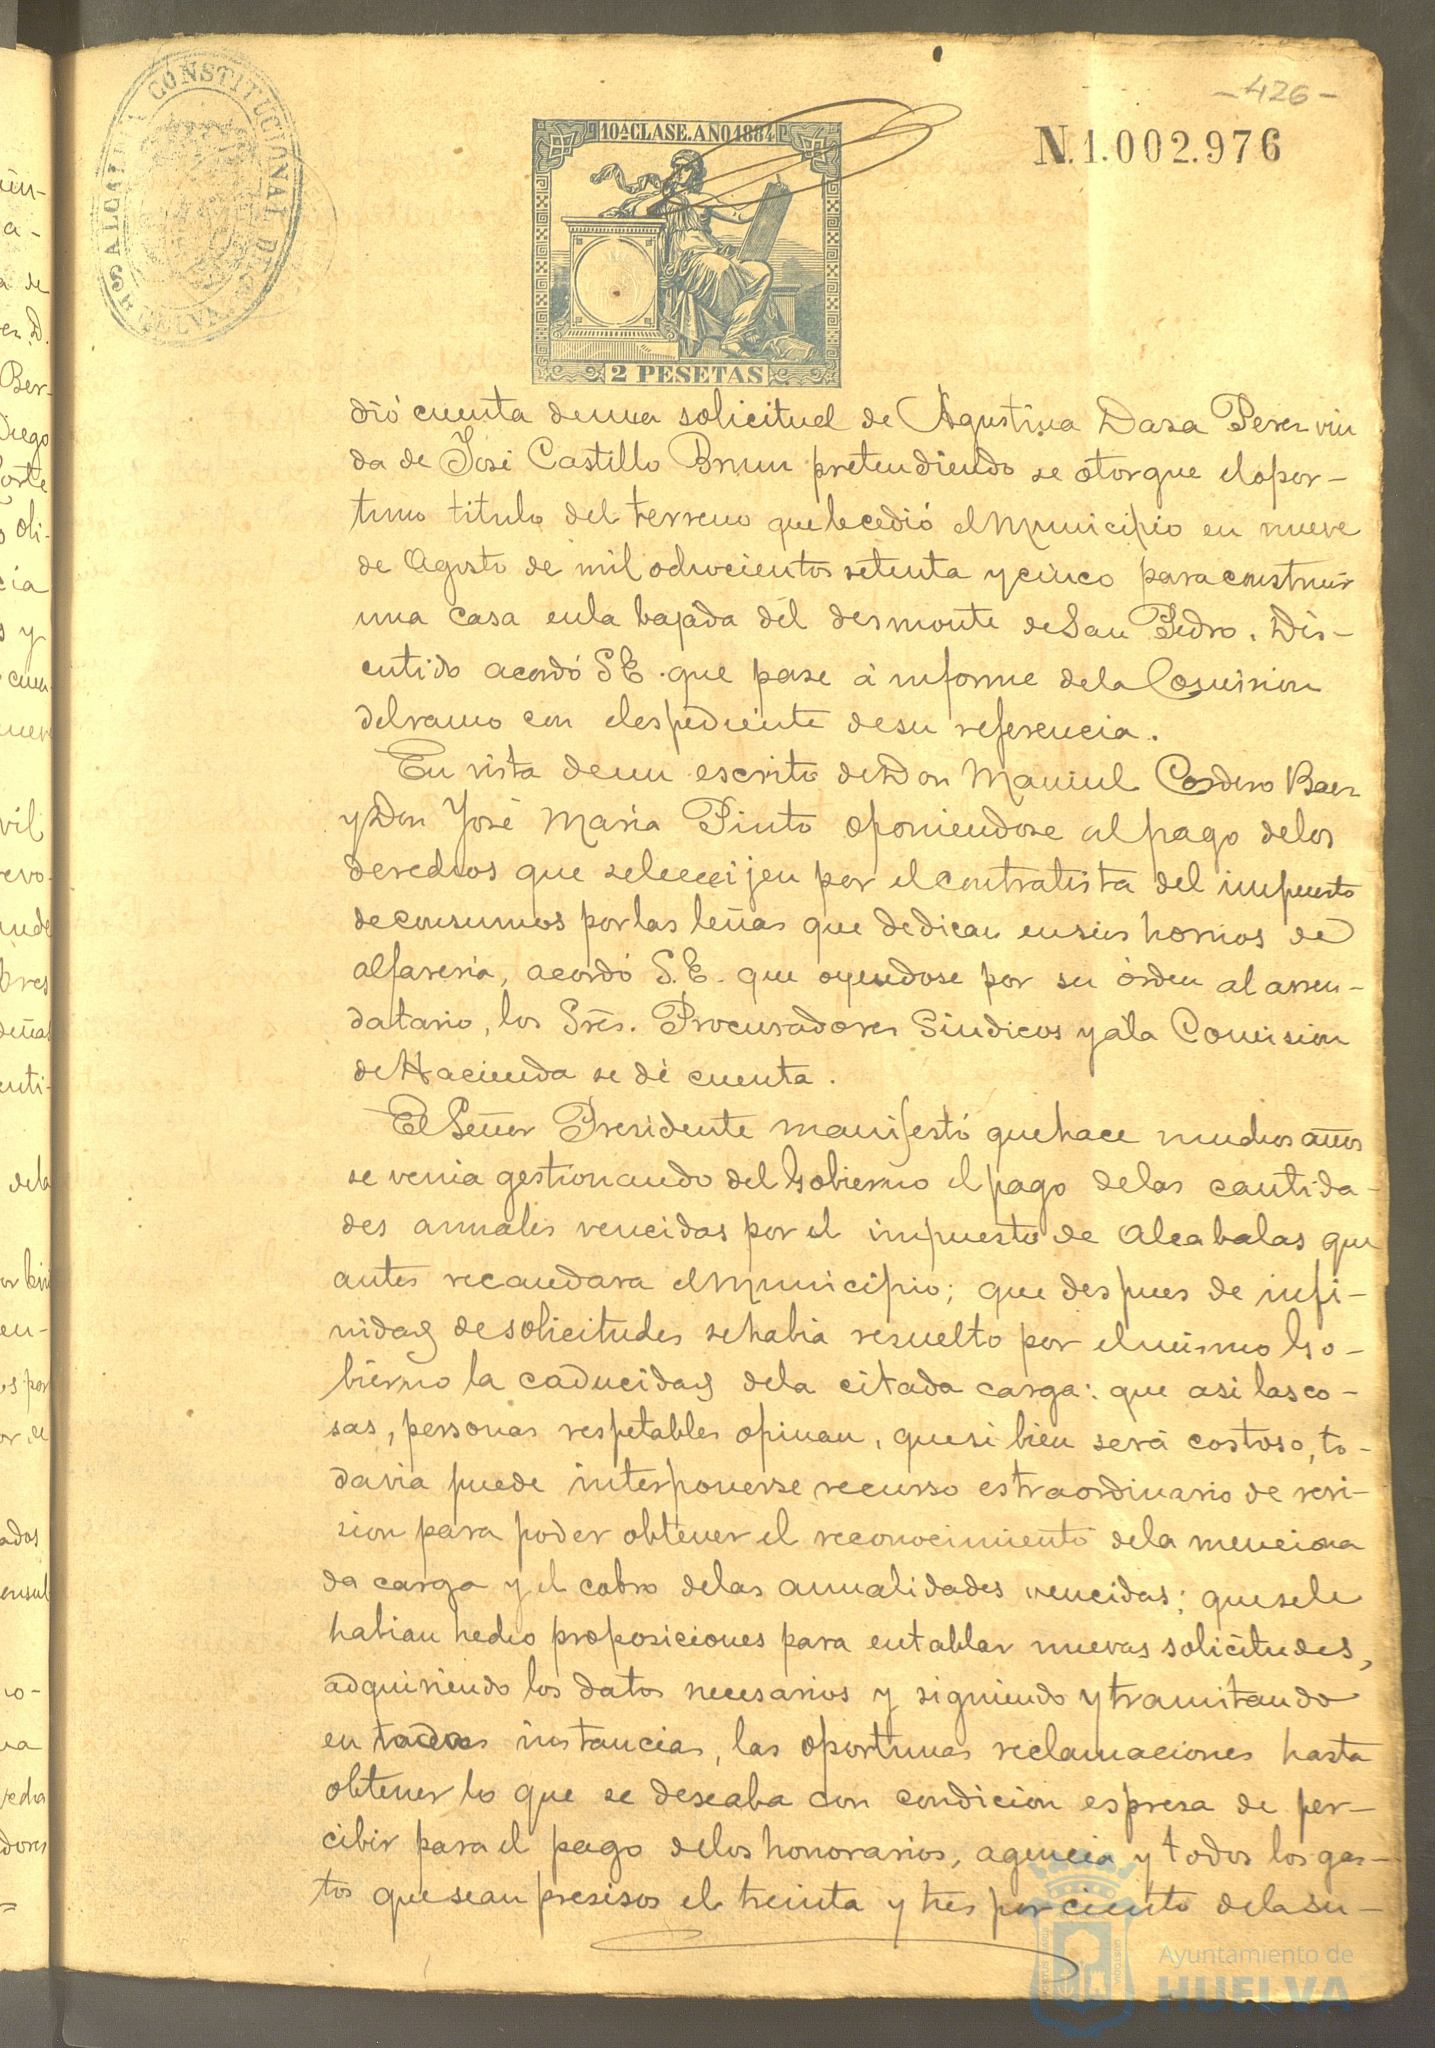 -426-
ALCALDIA CONSTITUCIONAL DE HUELVA
10ª CLASE. AÑO 1884
N.1.002.976
2 PESETAS
dió cuenta de una solicitud de Agustina Daza Perez viu
da de José Castillo Brun pretendiendo se otorgue el opor-
tuno titulo del terreno que le cedió el Municipio en nueve
de Agosto de mil ochocientos setenta y cinco para construir
una casa en la bajada del desmonte de San Pedro. Dis-
cutido acordó S E. que pase á informe de la Comision
del ramo con el espediente de su referencia.
En vista de un escrito de Don Manuel Cordero Baez
y Don José Maria Pinto oponiendose al pago de los
derechos que se le ecsijen por el contratista del impuesto
de consumos por las leñas que dedican en sus hornos de
alfareria, acordó S.E. que oyendose por su órden al arren-
datario, los Sres. Procuradores Sindicos y á la Comision
de Hacienda se dé cuenta.
El Señor Presidente manifestó que hace muchos años
se venia gestionando del Gobierno el pago de las cantida-
des anuales vencidas por el impuesto de Alcabalas que
antes recaudara el Municipio; que despues de infi-
nidad de solicitudes se habia resuelto por el mismo Go-
bierno la caducidad de la citada carga: que asi las co-
sas, personas respetables opinan, que si bien será costoso, to-
davia puede interponerse recurso estraordinario de revi-
sion para poder obtener el reconocimiento de la menciona
da carga y el cobro de las anualidades vencidas; que se le
habian hecho proposiciones para entablar nuevas solicitudes,
adquiriendo los datos necesarios y siguiendo y tramitando
en todas instancias, las oportunas reclamaciones hasta
obtener lo que se deseaba con condicion espresa de per-
cibir para el pago de los honorarios, agencia y todos los gas-
tos que sean presisos el treinta y tres por ciento de la su-
Ayuntamiento de
HUELVA